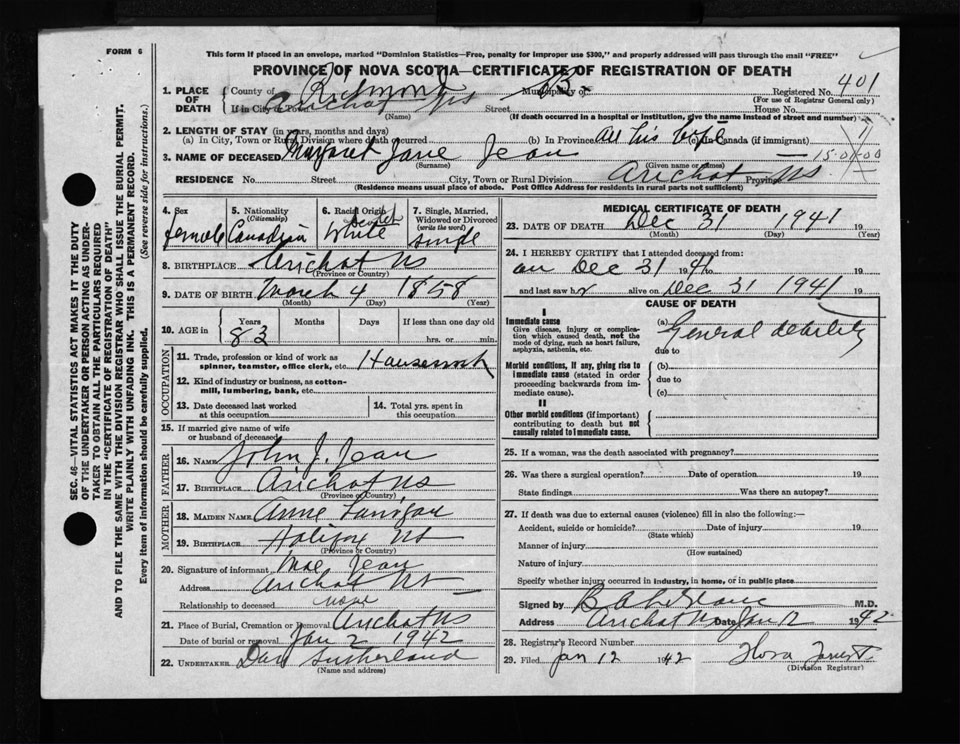 FORM 6
This form if placed in an envelope, marked "Dominion Statistics—Free, penalty for improper use $300," and properly addressed will pass through the mail "FREE"
PROVINCE OF NOVA SCOTIA—CERTIFICATE OF REGISTRATION OF DEATH
1. PLACE OF DEATH
County of Richmond Municipality of
Registered No. 401
(For use of Registrar General only)
If in City or Town Arichat NS Street House No.
(Name)
(If death occurred in a hospital or institution, give the name instead of street and number)
2. LENGTH OF STAY (in years, months and days)
(a) In City, Town or Rural Division where death occurred (b) In Province All his life (c) In Canada (if immigrant)
3. NAME OF DECEASED Margaret Jane Jean
(Surname) (Given name or names)
RESIDENCE No. Street City, Town or Rural Division Arichat Province NS
(Residence means usual place of abode. Post Office Address for residents in rural parts not sufficient)
4. Sex
female
5. Nationality
(Citizenship)
Canadian
6. Racial Origin
Scotch
White
7. Single, Married, Widowed or Divorced
(write the word)
single
8. BIRTHPLACE Arichat NS
(Province or Country)
9. DATE OF BIRTH March 4 1858
(Month) (Day) (Year)
10. AGE in Years Months Days If less than one day old
83 hrs. or min.
OCCUPATION
11. Trade, profession or kind of work as spinner, teamster, office clerk, etc. Housework
12. Kind of industry or business, as cotton-mill, lumbering, bank, etc.
13. Date deceased last worked at this occupation
14. Total yrs. spent in this occupation
15. If married give name of wife or husband of deceased
FATHER
16. NAME John J. Jean
17. BIRTHPLACE Arichat NS
(Province or Country)
MOTHER
18. MAIDEN NAME Anne
19. BIRTHPLACE Halifax NS
(Province or Country)
20. Signature of informant Mae Jean
Address Arichat NS
Relationship to deceased
21. Place of Burial, Cremation or Removal Arichat NS
Date of burial or removal Jan 2 1942
22. UNDERTAKER Dan Sutherland
(Name and address)
MEDICAL CERTIFICATE OF DEATH
23. DATE OF DEATH Dec 31 1941 19
(Month) (Day) (Year)
24. I HEREBY CERTIFY that I attended deceased from:
on Dec 31 1941 to 19
and last saw her alive on Dec 31 1941 19
CAUSE OF DEATH
I
Immediate cause
Give disease, injury or complication which caused death, not the mode of dying, such as heart failure, asphyxia, asthenia, etc.
(a) General debility
due to
Morbid conditions, if any, giving rise to immediate cause (stated in order proceeding backwards from immediate cause).
(b)
due to
(c)
II
Other morbid conditions (if important) contributing to death but not causally related to immediate cause.
25. If a woman, was the death associated with pregnancy?
26. Was there a surgical operation? Date of operation 19
State findings Was there an autopsy?
27. If death was due to external causes (violence) fill in also the following:—
Accident, suicide or homicide? Date of injury 19
(State which)
Manner of injury
(How sustained)
Nature of injury
Specify whether injury occurred in industry, in home, or in public place
Signed by M.D.
Address Arichat NS Date Jan 12 1942
28. Registrar's Record Number
29. Filed Jan 12 1942 Flora
(Division Registrar)
SEC. 46—VITAL STATISTICS ACT MAKES IT THE DUTY OF THE UNDERTAKER OR PERSON ACTING AS UNDERTAKER TO OBTAIN ALL THE PARTICULARS REQUIRED IN THE "CERTIFICATE OF REGISTRATION OF DEATH" AND TO FILE THE SAME WITH THE DIVISION REGISTRAR WHO SHALL ISSUE THE BURIAL PERMIT.
WRITE PLAINLY WITH UNFADING INK. THIS IS A PERMANENT RECORD.
Every item of information should be carefully supplied. (See reverse side for instructions.)